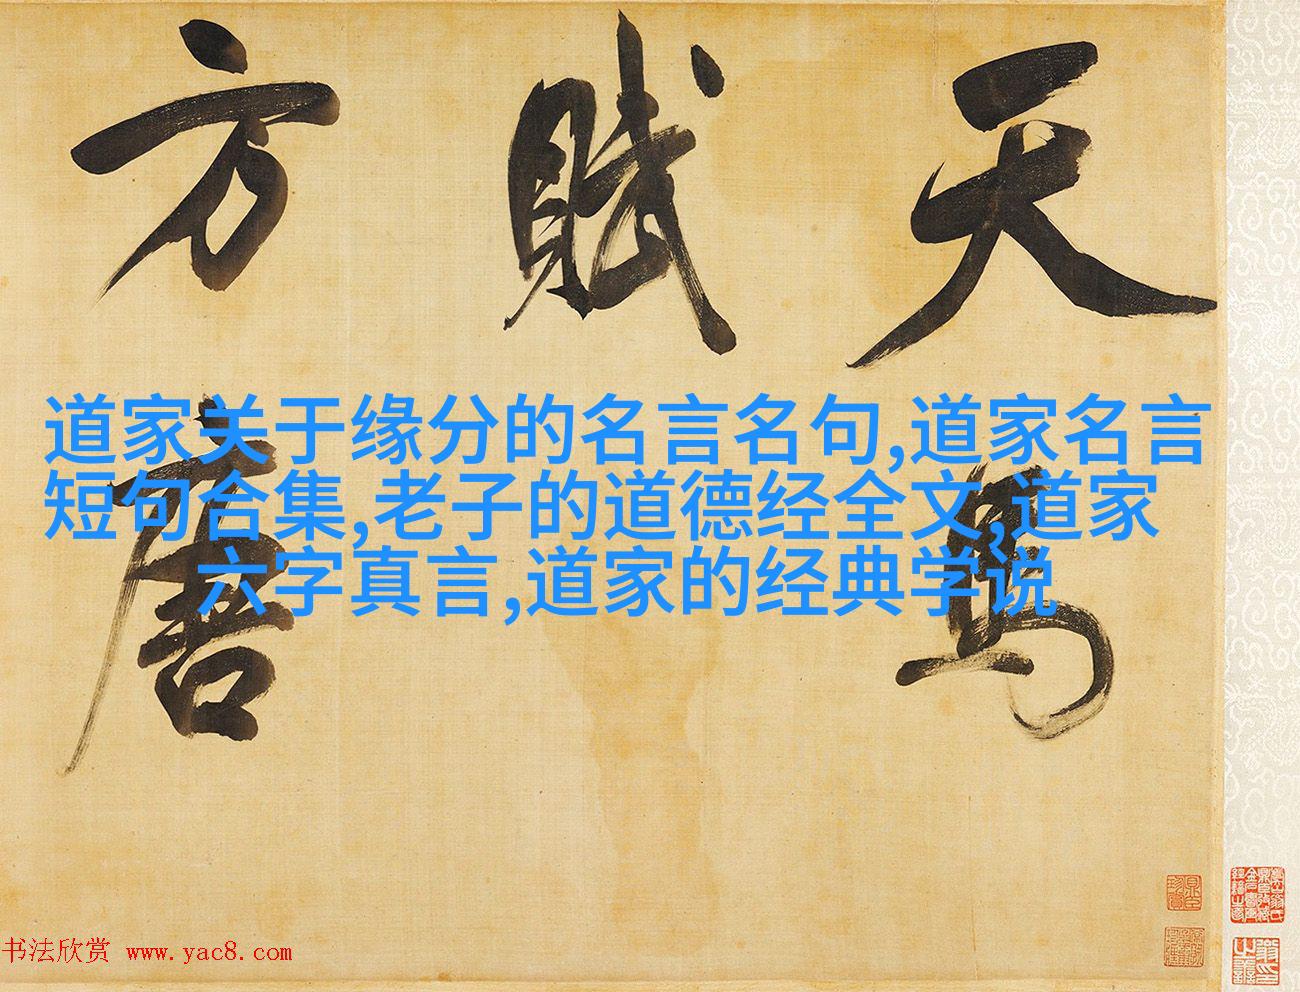 天馬
賦
方唐
道家关于缘分的名言名句,道家名言
短句合集,老子的道德经全文,道家
六字真言,道家的经典学说
书法欣赏 www.yac8.com